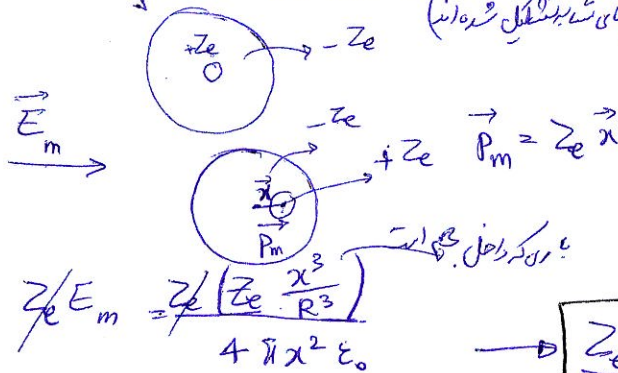 شده‌اند)
+Ze → -Ze
E⃗_m
-Ze
+Ze P⃗_m = Ze x⃗
x⃗
P⃗_m
باری که داخل است
Ze E_m = Ze (Ze x³/R³) / 4πx²ε₀ → Ze